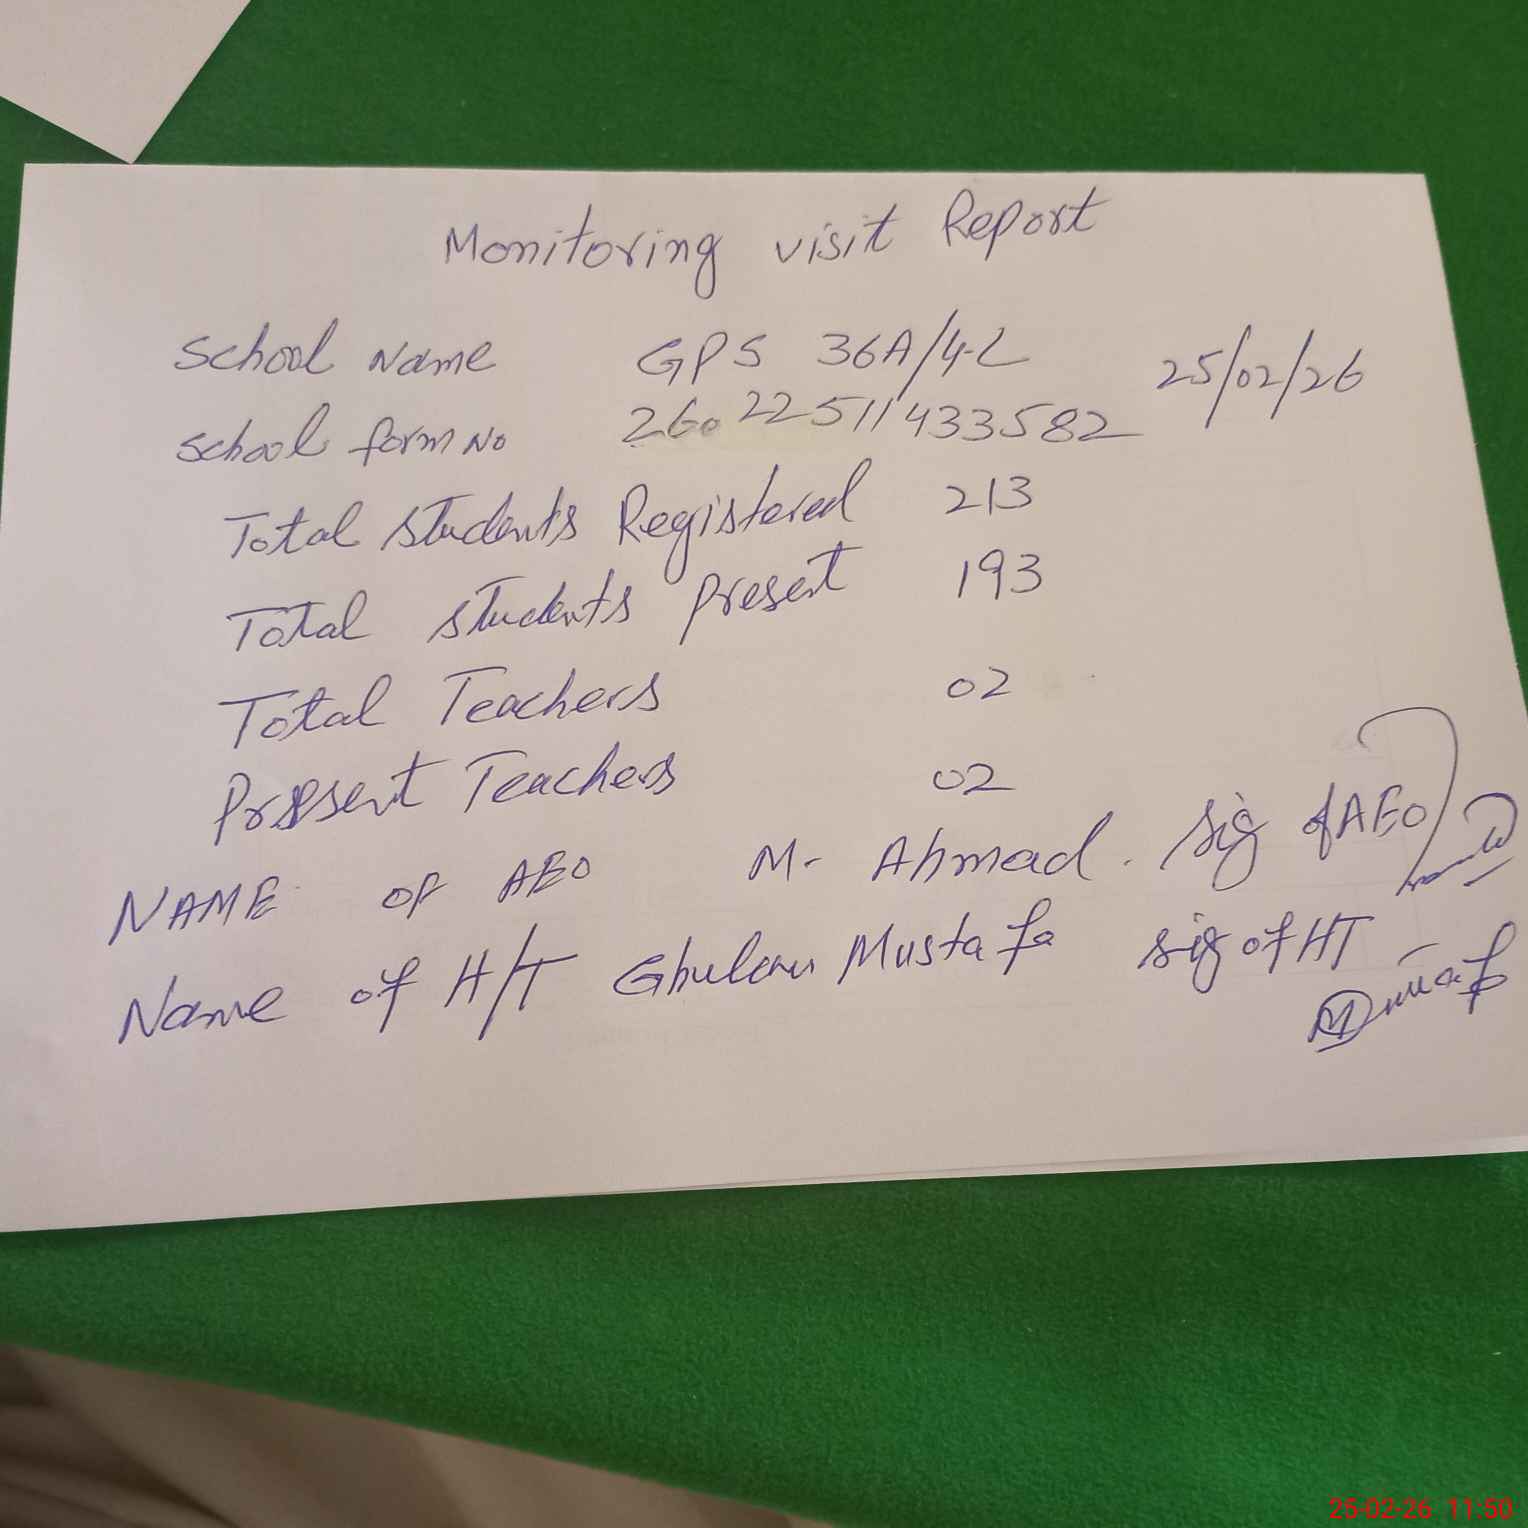 Monitoring visit Report
School Name GPS 36A/4-L 25/02/26
School form No 26022511433582
Total Students Registered 213
Total students present 193
Total Teachers 02
Present Teachers 02
NAME OF AEO M. Ahmad. Sig of AEO
Name of H/T Ghulam Mustafa sig of HT
25-02-26 11:50